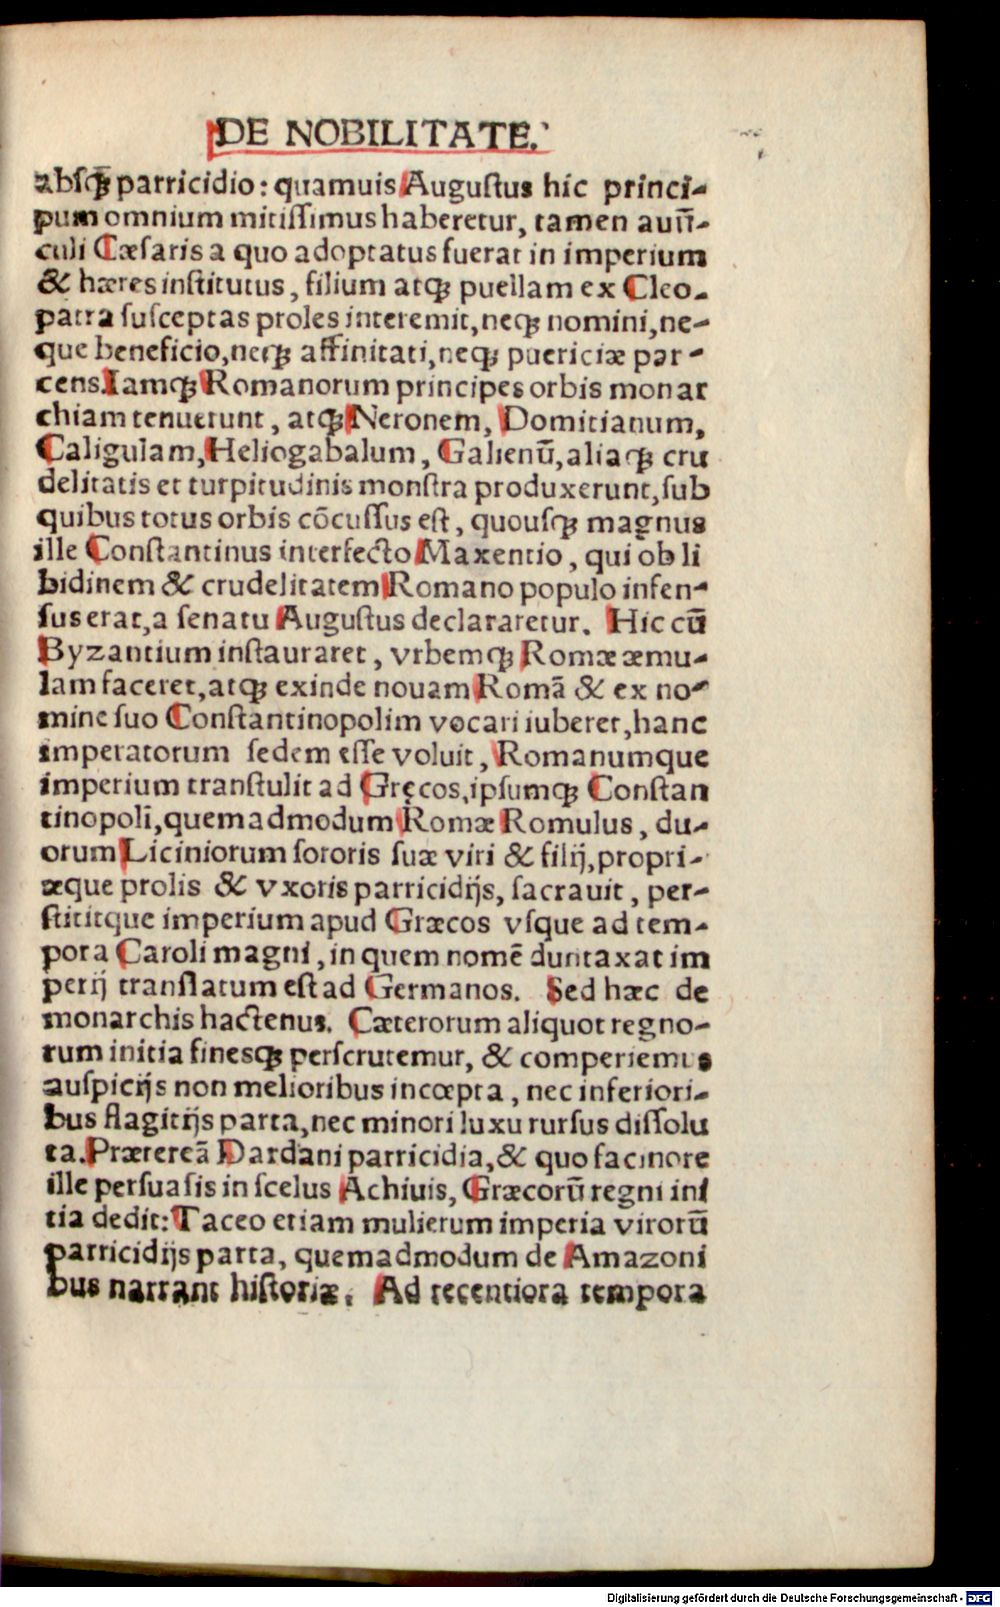 DE NOBILITATE.
absq̃ꝫ parricidio: quamuis Augustus hic princi-
pum omnium mitissimus haberetur, tamen auũ-
culi Cæsaris a quo adoptatus fuerat in imperium
& hæres institutus, filium atqꝫ puellam ex Cleo-
patra susceptas proles interemit, neqꝫ nomini, ne-
que beneficio, neqꝫ affinitati, neqꝫ puericiæ par-
cens. Iamqꝫ Romanorum principes orbis monar
chiam tenuerunt, atqꝫ Neronem, Domitianum,
Caligulam, Heliogabalum, Galienũ, aliaqꝫ cru
delitatis et turpitudinis monstra produxerunt, sub
quibus totus orbis cõcussus est, quousqꝫ magnus
ille Constantinus interfecto Maxentio, qui ob li
bidinem & crudelitatem Romano populo infen-
sus erat, a senatu Augustus declararetur. Hic cũ
Byzantium instauraret, vrbemqꝫ Romæ æmu-
lam faceret, atqꝫ exinde nouam Romã & ex no-
mine suo Constantinopolim vocari iuberet, hanc
imperatorum sedem esse voluit, Romanumque
imperium transtulit ad Gręcos, ipsumqꝫ Constan
tinopoli, quemadmodum Romæ Romulus, du-
orum Liciniorum sororis suæ viri & filij, propri-
æque prolis & vxoris parricidijs, sacrauit, per-
stititque imperium apud Græcos vsque ad tem-
pora Caroli magni, in quem nomẽ duntaxat im
perij translatum est ad Germanos. Sed hæc de
monarchis hactenus. Cæterorum aliquot regno-
rum initia finesqꝫ perscrutemur, & comperiemus
auspicijs non melioribus incœpta, nec inferiori-
bus flagitijs parta, nec minori luxu rursus dissolu
ta. Prætereã Dardani parricidia, & quo facinore
ille persuasis in scelus Achiuis, Græcorũ regni ini
tia dedit: Taceo etiam mulierum imperia virorũ
parricidijs parta, quemadmodum de Amazoni
bus narrant historiæ. Ad recentiora tempora
Digitalisierung gefördert durch die Deutsche Forschungsgemeinschaft - DFG